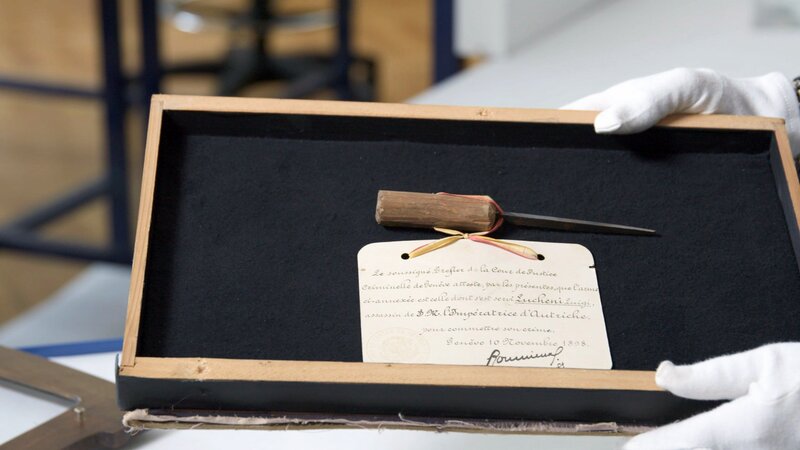 Le soussigné Greffier de la Cour de Justice
Criminelle de Genève atteste, par les présentes, que l'arme
ci-annexée est celle dont s'est servi Lucheni Luigi,
assassin de S. M. l'Impératrice d'Autriche,
pour commettre son crime.
Genève 10 Novembre 1898.